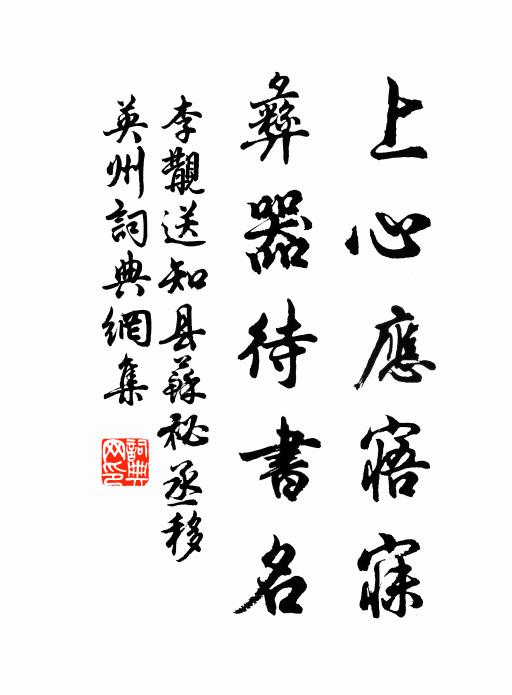 上心應寤寐
彞器待書名
李覯送知县蘇祕丞移
英州詞典網集
詞典网印